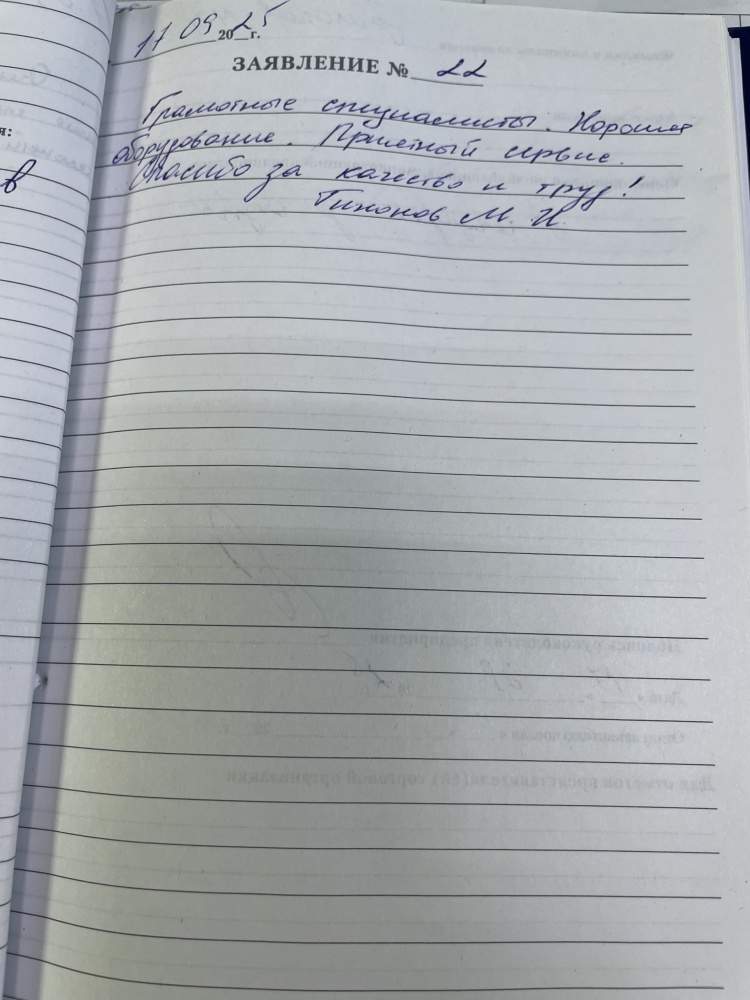 17 09 2025 г.
ЗАЯВЛЕНИЕ № 22
Грамотные специалисты. Хорошее
оборудование. Приятный сервис.
Спасибо за качество и труд!
Тихонов М. И.
я:
в